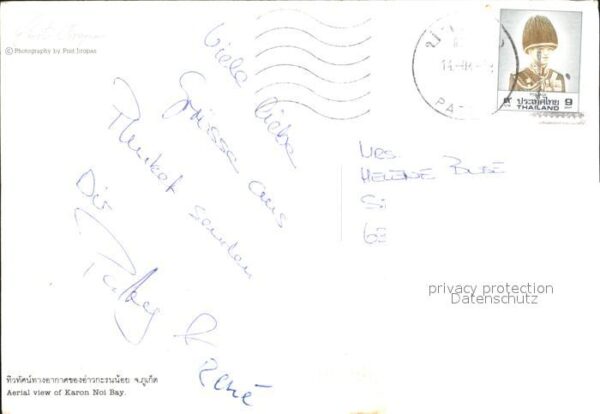 © Photography by Prat Iropas
Viele liebe
Grüsse aus
Phuket senden
Dir
René
ประเทศไทย 9
THAILAND
Mrs
HELENE
privacy protection
Datenschutz
ทิวทัศน์ทางอากาศของอ่าวกะรนน้อย จ.ภูเก็ต
Aerial view of Karon Noi Bay.